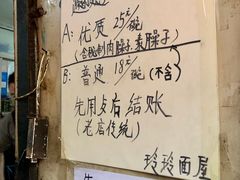 A: 优质 25元/碗
(含秘制肉臊子素臊子)
B: 普通 18元/碗 (不含)
先用点后结账
(老店传统)
玲玲面屋